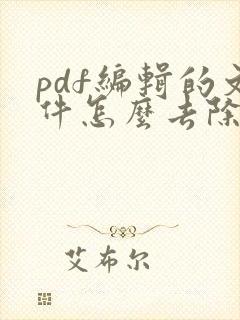 pdf编辑的文
件怎麼去除
艾布尔